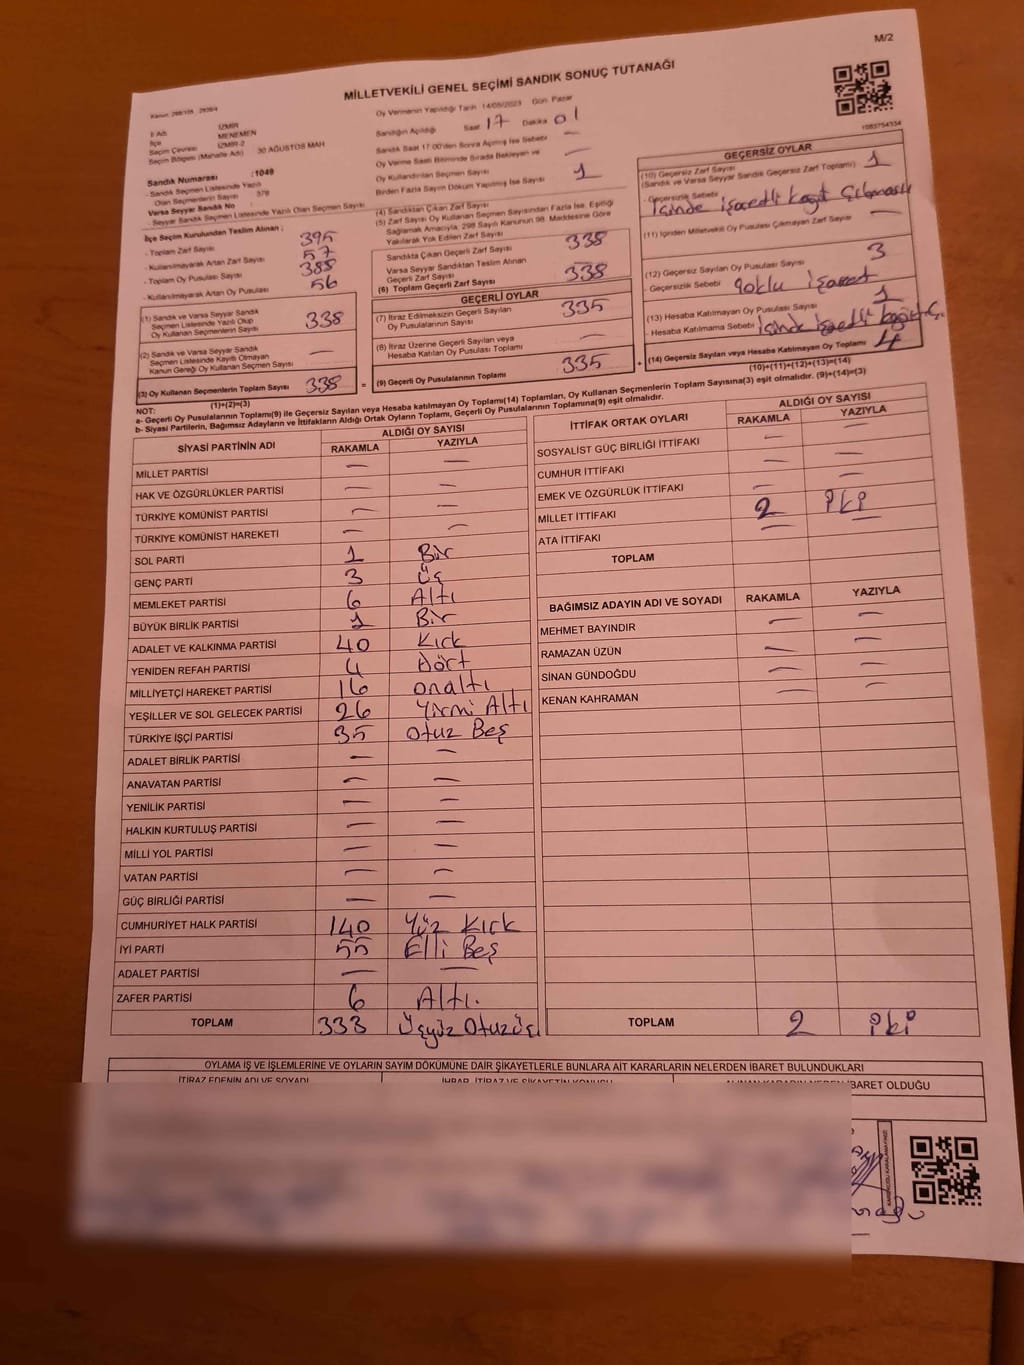 M/2
MİLLETVEKİLİ GENEL SEÇİMİ SANDIK SONUÇ TUTANAĞI
İl Adı İZMİR
İlçe MENEMEN
Seçim Çevresi İZMİR-2
Seçim Bölgesi (Mahalle Adı) 30 AĞUSTOS MAH
Sandık Numarası : 1049
- Sandık Seçmen Listesinde Yazılı
Olan Seçmenlerin Sayısı 378
Varsa Seyyar Sandık No
- Seyyar Sandık Seçmen Listesinde Yazılı Olan Seçmen Sayısı
İlçe Seçim Kurulundan Teslim Alınan :
- Toplam Zarf Sayısı 395
- Kullanılmayarak Artan Zarf Sayısı 57
- Toplam Oy Pusulası Sayısı 385
- Kullanılmayarak Artan Oy Pusulası 56
(1) Sandık ve Varsa Seyyar Sandık
Seçmen Listesinde Yazılı Olup
Oy Kullanan Seçmenlerin Sayısı 338
(2) Sandık ve Varsa Seyyar Sandık
Seçmen Listesinde Kayıtlı Olmayan
Kanun Gereği Oy Kullanan Seçmen Sayısı —
(3) Oy Kullanan Seçmenlerin Toplam Sayısı 338 =
(1)+(2)=(3)
Oy Vermenin Yapıldığı Tarih 14/05/2023 Gün Pazar
Sandığın Açıldığı Saat 17 Dakika 01
Sandık Saat 17.00'den Sonra Açılmış İse Sebebi —
Oy Verme Saati Bitiminde Sırada Bekleyen ve
Oy Kullandırılan Seçmen Sayısı —
Birden Fazla Sayım Döküm Yapılmış İse Sayısı 1
(4) Sandıktan Çıkan Zarf Sayısı
(5) Zarf Sayısı Oy Kullanan Seçmen Sayısından Fazla İse, Eşitliği
Sağlamak Amacıyla, 298 Sayılı Kanunun 98. Maddesine Göre
Yakılarak Yok Edilen Zarf Sayısı
Sandıkta Çıkan Geçerli Zarf Sayısı 338
Varsa Seyyar Sandıktan Teslim Alınan
Geçerli Zarf Sayısı
(6) Toplam Geçerli Zarf Sayısı 338
GEÇERLİ OYLAR
(7) İtiraz Edilmeksizin Geçerli Sayılan
Oy Pusulasının Sayısı 335
(8) İtiraz Üzerine Geçerli Sayılan veya
Hesaba Katılan Oy Pusulası Toplamı —
(9) Geçerli Oy Pusulalarının Toplamı 335 +
1083754334
GEÇERSİZ OYLAR
(10) Geçersiz Zarf Sayısı
(Sandık ve Varsa Seyyar Sandık Geçersiz Zarf Toplamı) 1
- Geçersizlik Sebebi içinde işaretli kağıt çıkması
(11) İçinden Milletvekili Oy Pusulası Çıkmayan Zarf Sayısı —
(12) Geçersiz Sayılan Oy Pusulası Sayısı 3
- Geçersizlik Sebebi çoklu işaret
(13) Hesaba Katılmayan Oy Pusulası Sayısı 1
- Hesaba Katılmama Sebebi içinde işaretli kağıt Ç.
(14) Geçersiz Sayılan veya Hesaba Katılmayan Oy Toplamı 4
(10)+(11)+(12)+(13)=(14)
NOT:
a- Geçerli Oy Pusulalarının Toplamı(9) ile Geçersiz Sayılan veya Hesaba katılmayan Oy Toplamı(14) Toplamları, Oy Kullanan Seçmenlerin Toplam Sayısına(3) eşit olmalıdır. (9)+(14)=(3)
b- Siyasi Partilerin, Bağımsız Adayların ve İttifakların Aldığı Ortak Oyların Toplamı, Geçerli Oy Pusulalarının Toplamına(9) eşit olmalıdır.
SİYASİ PARTİNİN ADI ALDIĞI OY SAYISI
RAKAMLA YAZIYLA
MİLLET PARTİSİ — —
HAK VE ÖZGÜRLÜKLER PARTİSİ — —
TÜRKİYE KOMÜNİST PARTİSİ — —
TÜRKİYE KOMÜNİST HAREKETİ — —
SOL PARTİ 1 Bir
GENÇ PARTİ 3 Üç
MEMLEKET PARTİSİ 6 Altı
BÜYÜK BİRLİK PARTİSİ 1 Bir
ADALET VE KALKINMA PARTİSİ 40 Kırk
YENİDEN REFAH PARTİSİ 4 Dört
MİLLİYETÇİ HAREKET PARTİSİ 16 onaltı
YEŞİLLER VE SOL GELECEK PARTİSİ 26 Yirmi Altı
TÜRKİYE İŞÇİ PARTİSİ 35 otuz Beş
ADALET BİRLİK PARTİSİ — —
ANAVATAN PARTİSİ — —
YENİLİK PARTİSİ — —
HALKIN KURTULUŞ PARTİSİ — —
MİLLİ YOL PARTİSİ — —
VATAN PARTİSİ — —
GÜÇ BİRLİĞİ PARTİSİ — —
CUMHURİYET HALK PARTİSİ 140 Yüz Kırk
İYİ PARTİ 55 Elli Beş
ADALET PARTİSİ — —
ZAFER PARTİSİ 6 Altı.
TOPLAM 333 Üçyüz Otuzüç
İTTİFAK ORTAK OYLARI ALDIĞI OY SAYISI
RAKAMLA YAZIYLA
SOSYALİST GÜÇ BİRLİĞİ İTTİFAKI — —
CUMHUR İTTİFAKI — —
EMEK VE ÖZGÜRLÜK İTTİFAKI — —
MİLLET İTTİFAKI 2 İki
ATA İTTİFAKI — —
TOPLAM
BAĞIMSIZ ADAYIN ADI VE SOYADI RAKAMLA YAZIYLA
MEHMET BAYINDIR — —
RAMAZAN ÜZÜN — —
SİNAN GÜNDOĞDU — —
KENAN KAHRAMAN — —
TOPLAM 2 İki
OYLAMA İŞ VE İŞLEMLERİNE VE OYLARIN SAYIM DÖKÜMÜNE DAİR ŞİKAYETLERLE BUNLARA AİT KARARLARIN NELERDEN İBARET BULUNDUKLARI
İTİRAZ EDENİN ADI VE SOYADI
İBARET OLDUĞU